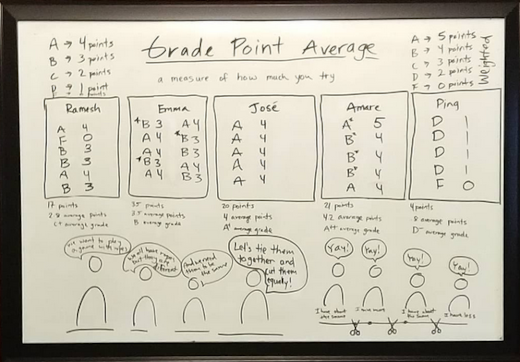 Grade Point Average
a measure of how much you try
A → 4 points
B → 3 points
C → 2 points
D → 1 points
A → 5 points
B → 4 points
C → 3 points
D → 2 points
F → 0 points
Weighted
Ramesh
A 4
F 0
B 3
B 3
A 4
B 3
17 points
2.8 average points
C+ average grade
Emma
*B 3 A 4
A 4 *B 3
A 4 A 4
*B 3 A 4
A 4 B 3
35 points
3.5 average points
B average grade
José
A 4
A 4
A 4
A 4
A 4
20 points
4 average points
average grade
Amare
A* 5
B* 4
B* 4
B* 4
A 4
21 points
4.2 average points
A++ average grade
Ping
D 1
D 1
D 1
D 1
F 0
4 points
.8 average points
D- average grade
We want to play
a game with
We all have ropes
but they are
different
And we need
them to be
the same
Let's tie them
together and
cut them
equally!
Yay!
Yay!
Yay!
Yay!
I have about
the same
I have more
I have about
the same
I have less